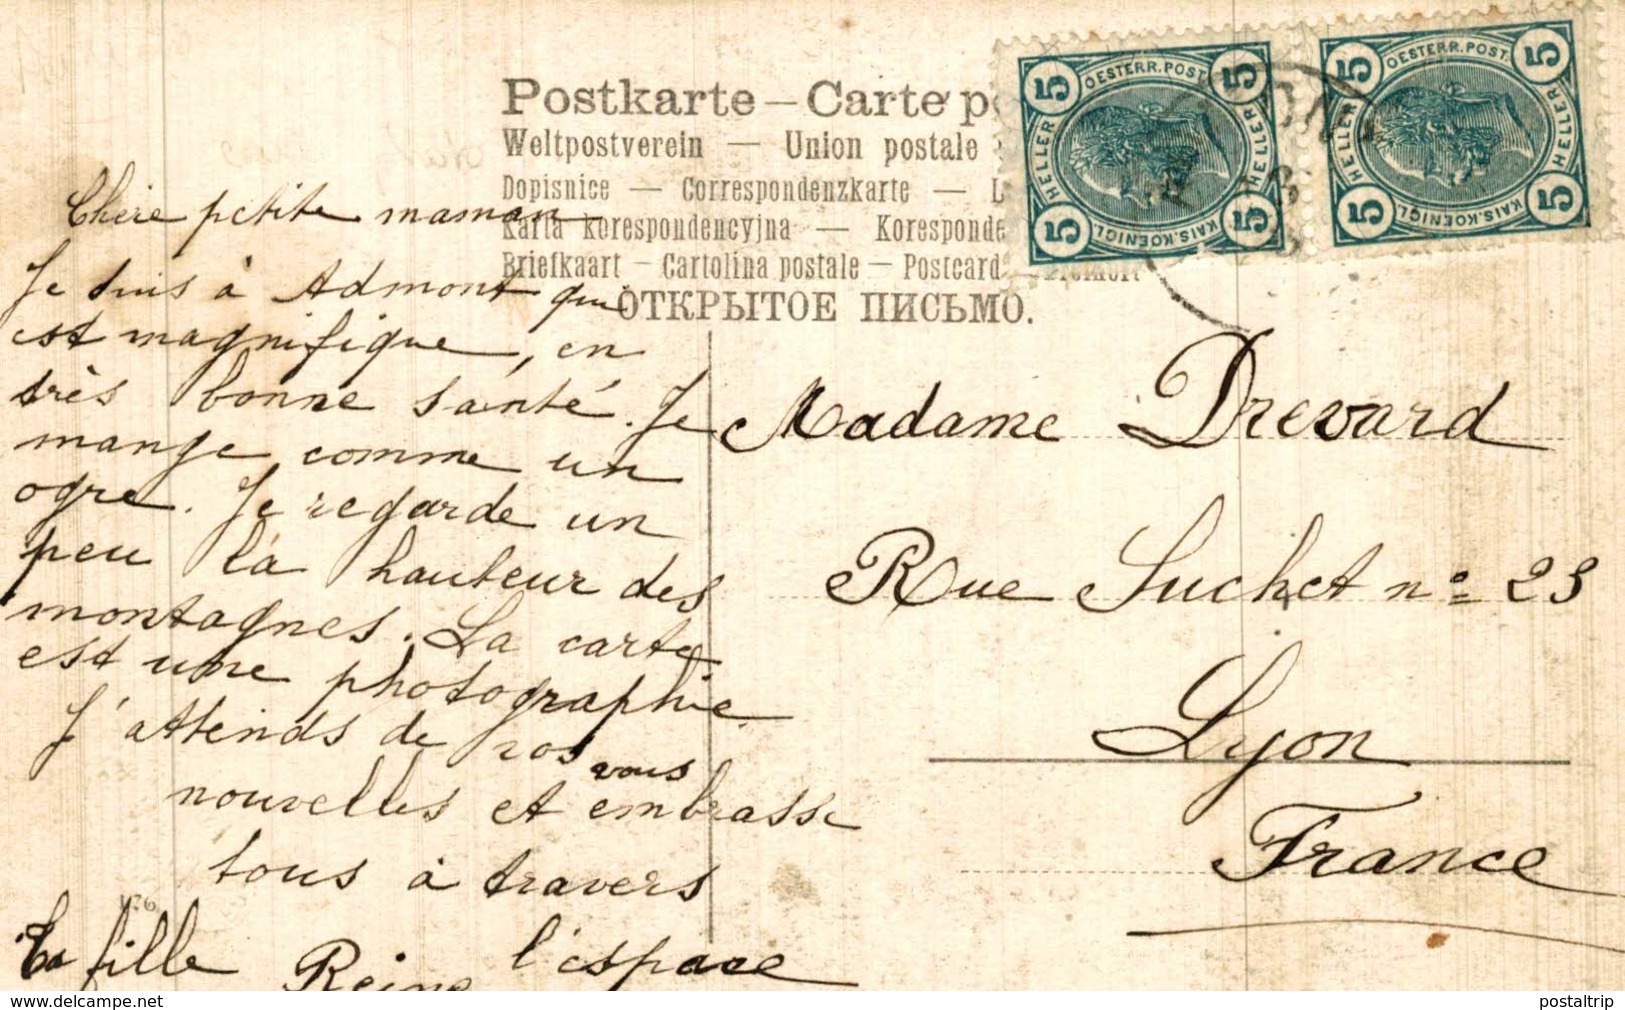 Postkarte — Carte po
Weltpostverein — Union postale
Dopisnice — Correspondenzkarte — L
Karta korespondencyjna — Koresponde
Briefkaart — Cartolina postale — Postcard —
ОТКРЫТОЕ ПИСЬМО.
5 OESTERR. POST. 5
HELLER HELLER
5 KAIS. KOENIGL. 5
5 OESTERR. POST. 5
HELLER HELLER
5 KAIS. KOENIGL. 5
Chère petite maman
Je suis à Admont qui
est magnifique, en
très bonne santé. Je
mange comme un
ogre. Je regarde un
peu la hauteur des
montagnes. La carte
est une photographie.
J'attends de vos
nouvelles et vous embrasse
tous à travers
l'espace
Ta fille Reine
Madame Drevard
Rue Suchet nº 23
Lyon
France
Delcampe.net
postaltrip